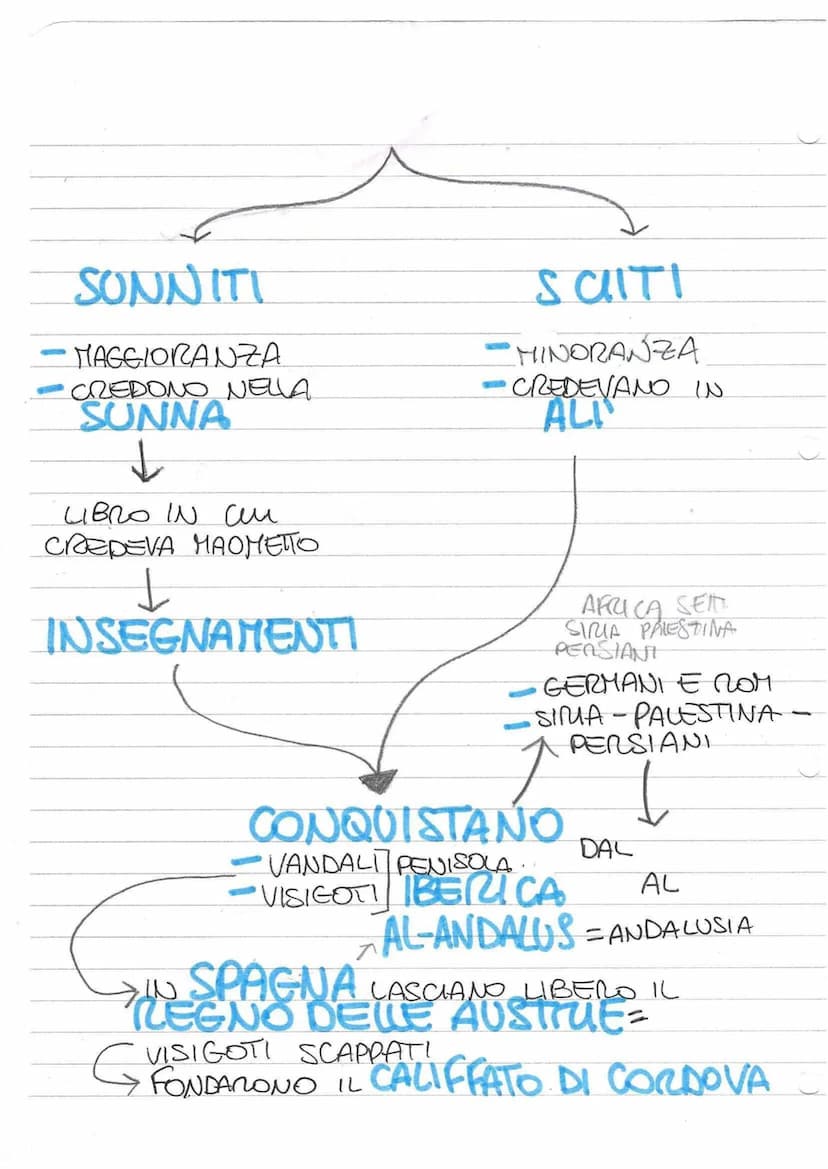 SUNNITI
SCIITI
- MAGGIORANZA
- CREDONO NELLA
SUNNA
- MINORANZA
- CREDEVANO IN
ALI'
LIBRO IN CUI
CREDEVA MAOMETTO
INSEGNAMENTI
AFRICA SETT
SIRIA PALESTINA
PERSIANI
- GERMANI E ROM
- SIRIA - PALESTINA -
PERSIANI
CONQUISTANO
- VANDALI
- VISIGOTI
PENISOLA
IBERICA
DAL
AL
AL-ANDALUS = ANDALUSIA
IN SPAGNA LASCIANO LIBERO IL
REGNO DELLE AUSTRIE =
VISIGOTI SCAPPATI
FONDARONO IL CALIFFATO DI CORDOVA